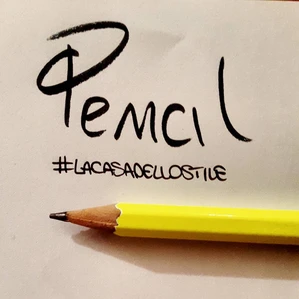 Pencil
#LACASADELLOSTILE